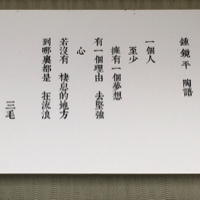 鍾鏡平 陶語
一個人
至少
擁有一個夢想
有一個理由 去堅強
心
若沒有 棲息的地方
到哪裏都是 在流浪
三毛